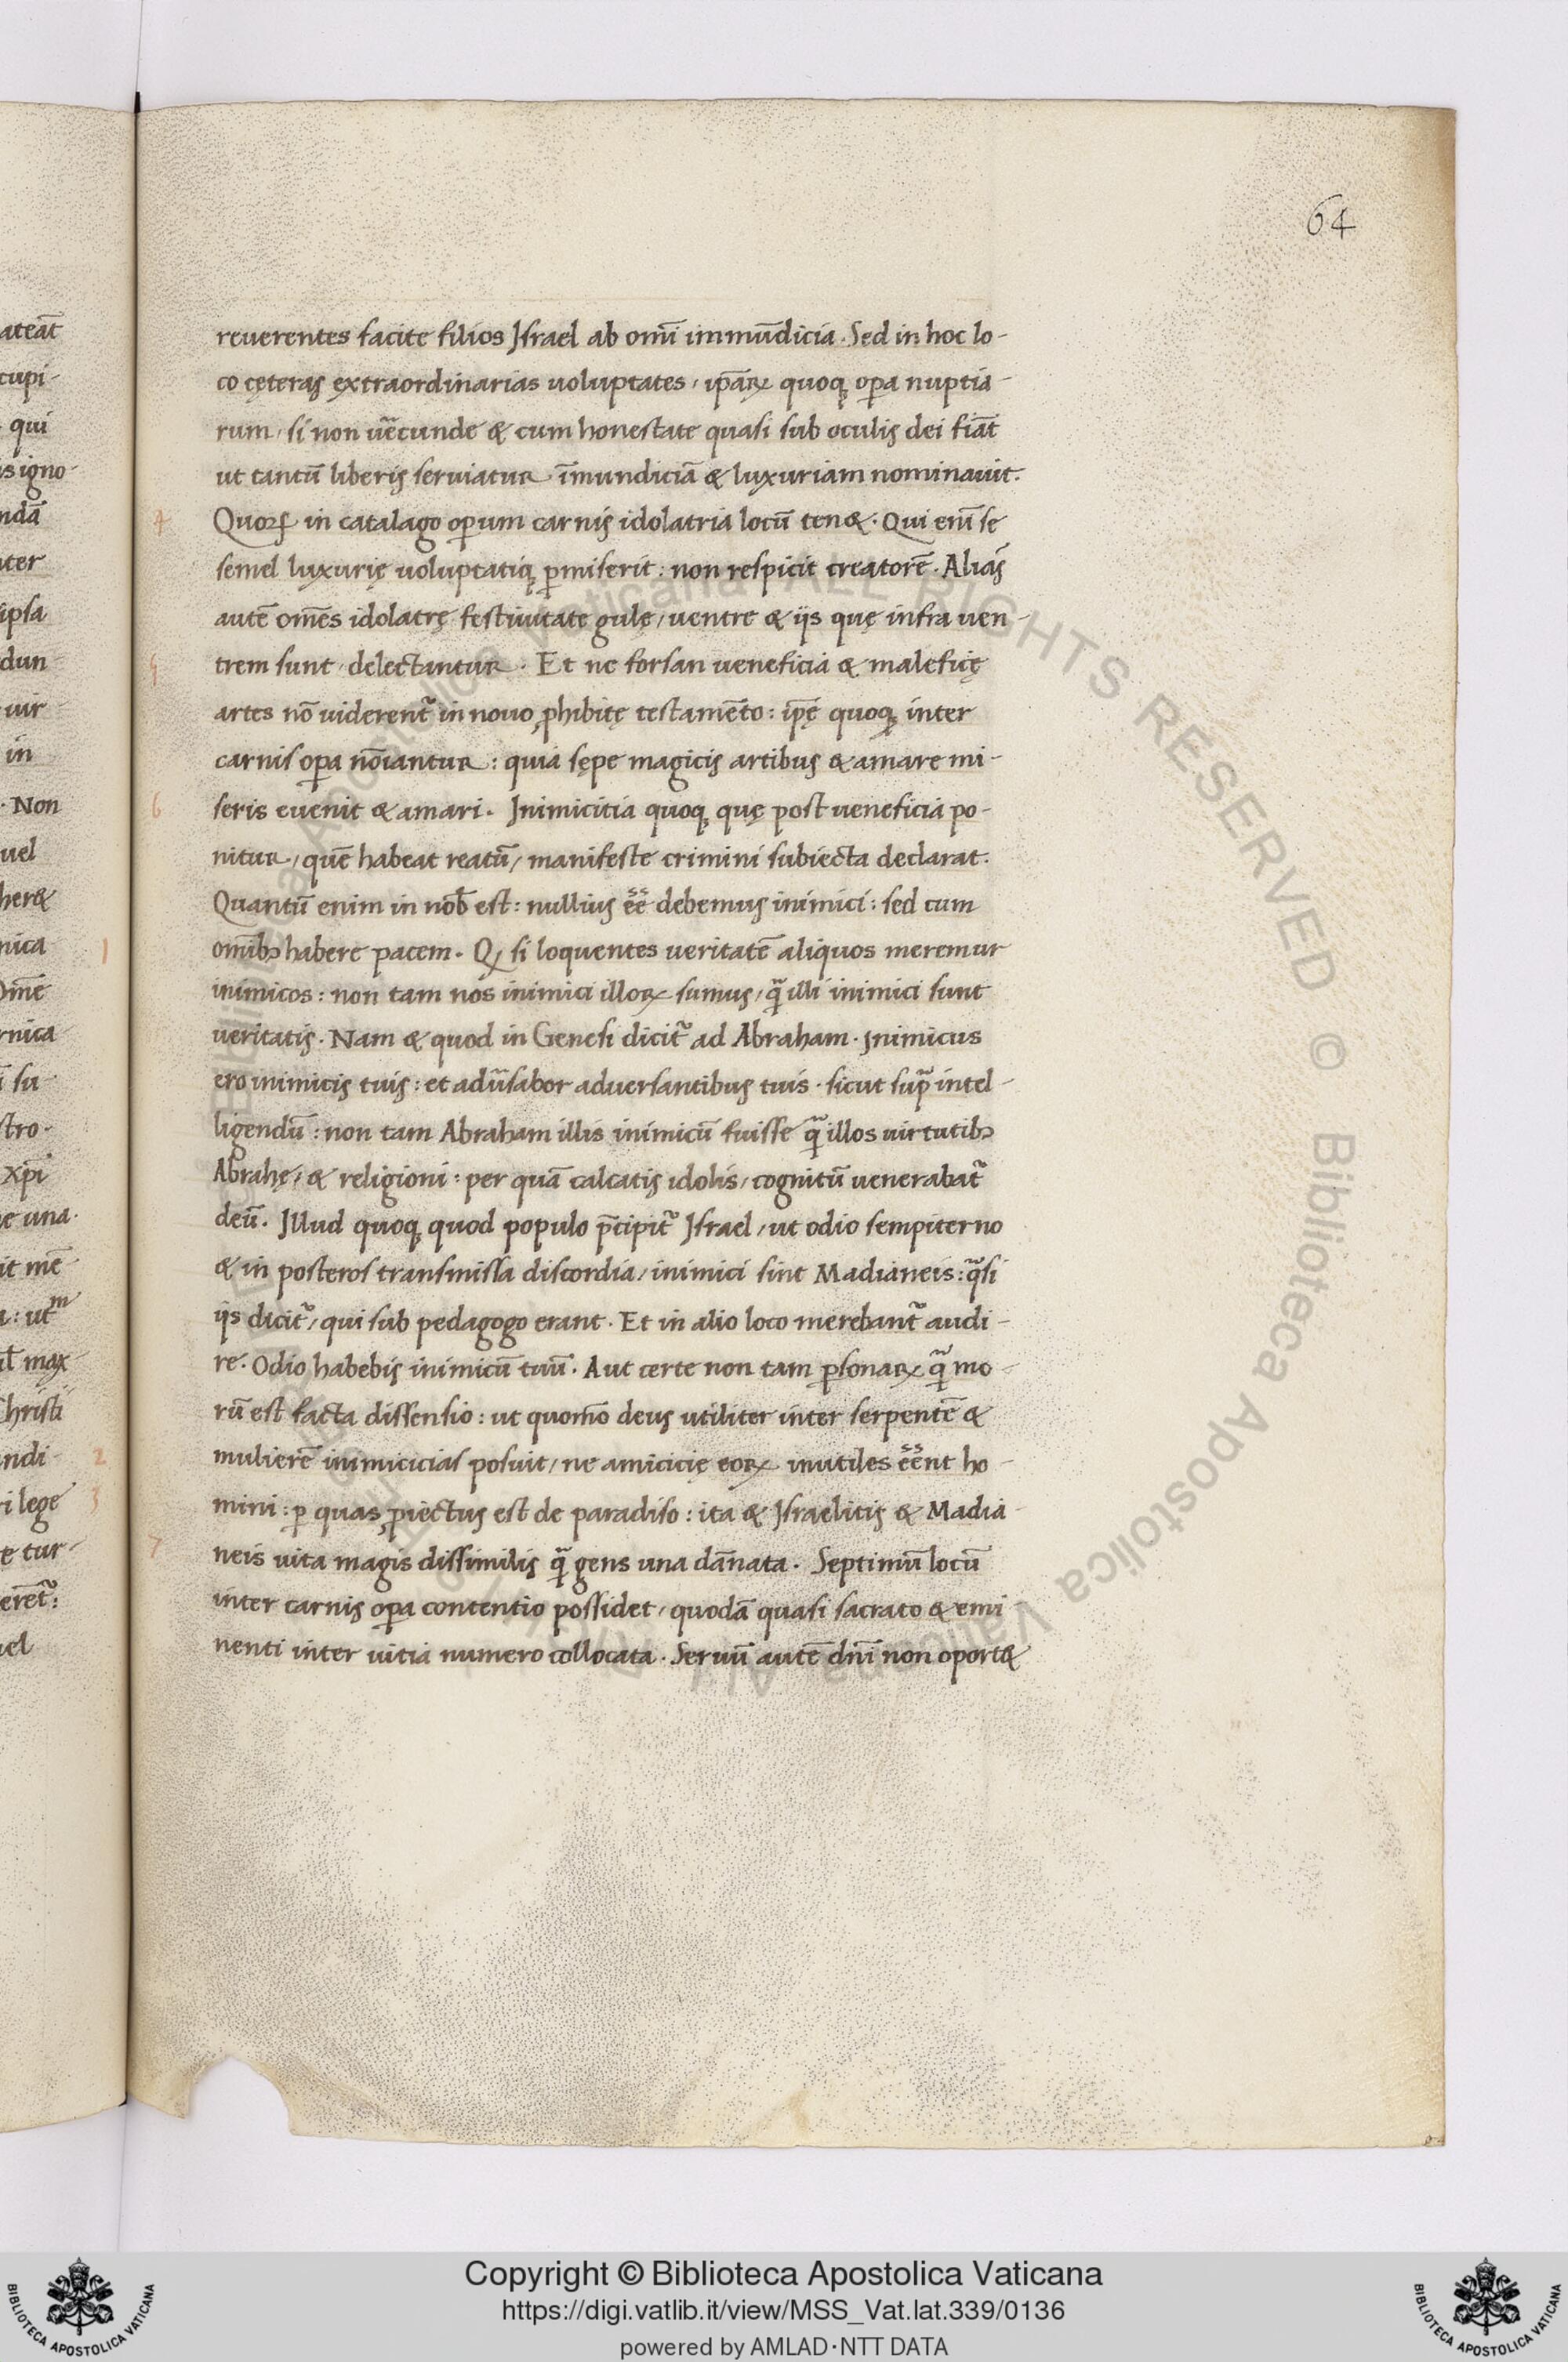 64
reuerentes facite filios Israel ab om̄i immūdicia. Sed in hoc lo-
co ceteras extraordinarias uoluptates, ip̄aꝝ quoqꝫ oꝑa nuptia-
rum, si non uēcunde & cum honestate quasi sub oculis dei fiāt
ut tantū liberis seruiatur īmundiciā & luxuriam nominauit.
4 Quorſ in catalago oꝑum carnis idolatria locū ten&. Qui eni᷒ se
semel luxurię uoluptatiqꝫ ꝑmiserit: non respicit creatorē. Alias
autē om̄es idolatrę festiuitate gulę, uentre & iis quę infra uen-
5 trem sunt, delectantur. Et ne forsan ueneficia & maleficę
artes nō uiderent᷑ in nouo ꝓhibitę testamēto: ip̄ę quoqꝫ inter
carnis oꝑa nōiantur: quia sępe magicis artibus & amare mi-
6 seris euenit & amari. Inimicitia quoqꝫ quę post ueneficia po-
nitur, quē habeat reatū, manifeste crimini subiecta declarat.
Quantū enim in nob̄ est: nullius eē debemus inimici: sed cum
om̄ibꝫ habere pacem. Qꝫ si loquentes ueritatē aliquos meremur
inimicos: non tam nos inimici illoꝝ sumus, qᷓ illi inimici sunt
ueritatis. Nam & quod in Genesi dicit᷑ ad Abraham. Inimicus
ero inimicis tuis: et adu̅sabor aduersantibus tuis. sicut supᷓ intel-
ligendū: non tam Abraham illis inimicū fuisse qᷓ illos uirtutibꝫ
Abrahę, & religioni: per quā calcatis idolis, cognitū uenerabat᷑
deū. Illud quoqꝫ quod populo p̄cipit᷑ Israel, ut odio sempiterno
& in posteros transmissa discordia, inimici sint Madianeis: qᷓsi
iis dicit᷑, qui sub pedagogo erant. Et in alio loco merebant᷑ audi-
re. Odio habebis inimicū tuū. Aut certe non tam ꝑsonaꝝ qᷓ mo-
rū est facta dissensio: ut quom̄o deus utiliter inter serpentē &
mulierē inimicicias posuit, ne amicicię eoꝝ inutiles eēnt ho-
mini: ꝑ quas ꝓiectus est de paradiso: ita & Israelitis & Madia-
7 neis uita magis dissimilis qᷓ gens una dānata. Septimū locū
inter carnis oꝑa contentio possidet, quodā quasi sacrato & emi-
nenti inter uitia numero collocata. Seruū autē dn̄i non oport&
ateāt
cupi-
qui
is igno-
ndā
ter
ipsa
dun-
uir
in
. Non
uel
her&
nica 1
Om̄e
rnica
su-
stro.
xp̄i
e una.
it mē
: utᵐ
max
Christi
ndi- 2
i lege 3
e tur-
erēt᷑:
el
Copyright © Biblioteca Apostolica Vaticana
https://digi.vatlib.it/view/MSS_Vat.lat.339/0136
powered by AMLAD·NTT DATA
BIBLIOTECA APOSTOLICA VATICANA
BIBLIOTECA APOSTOLICA VATICANA